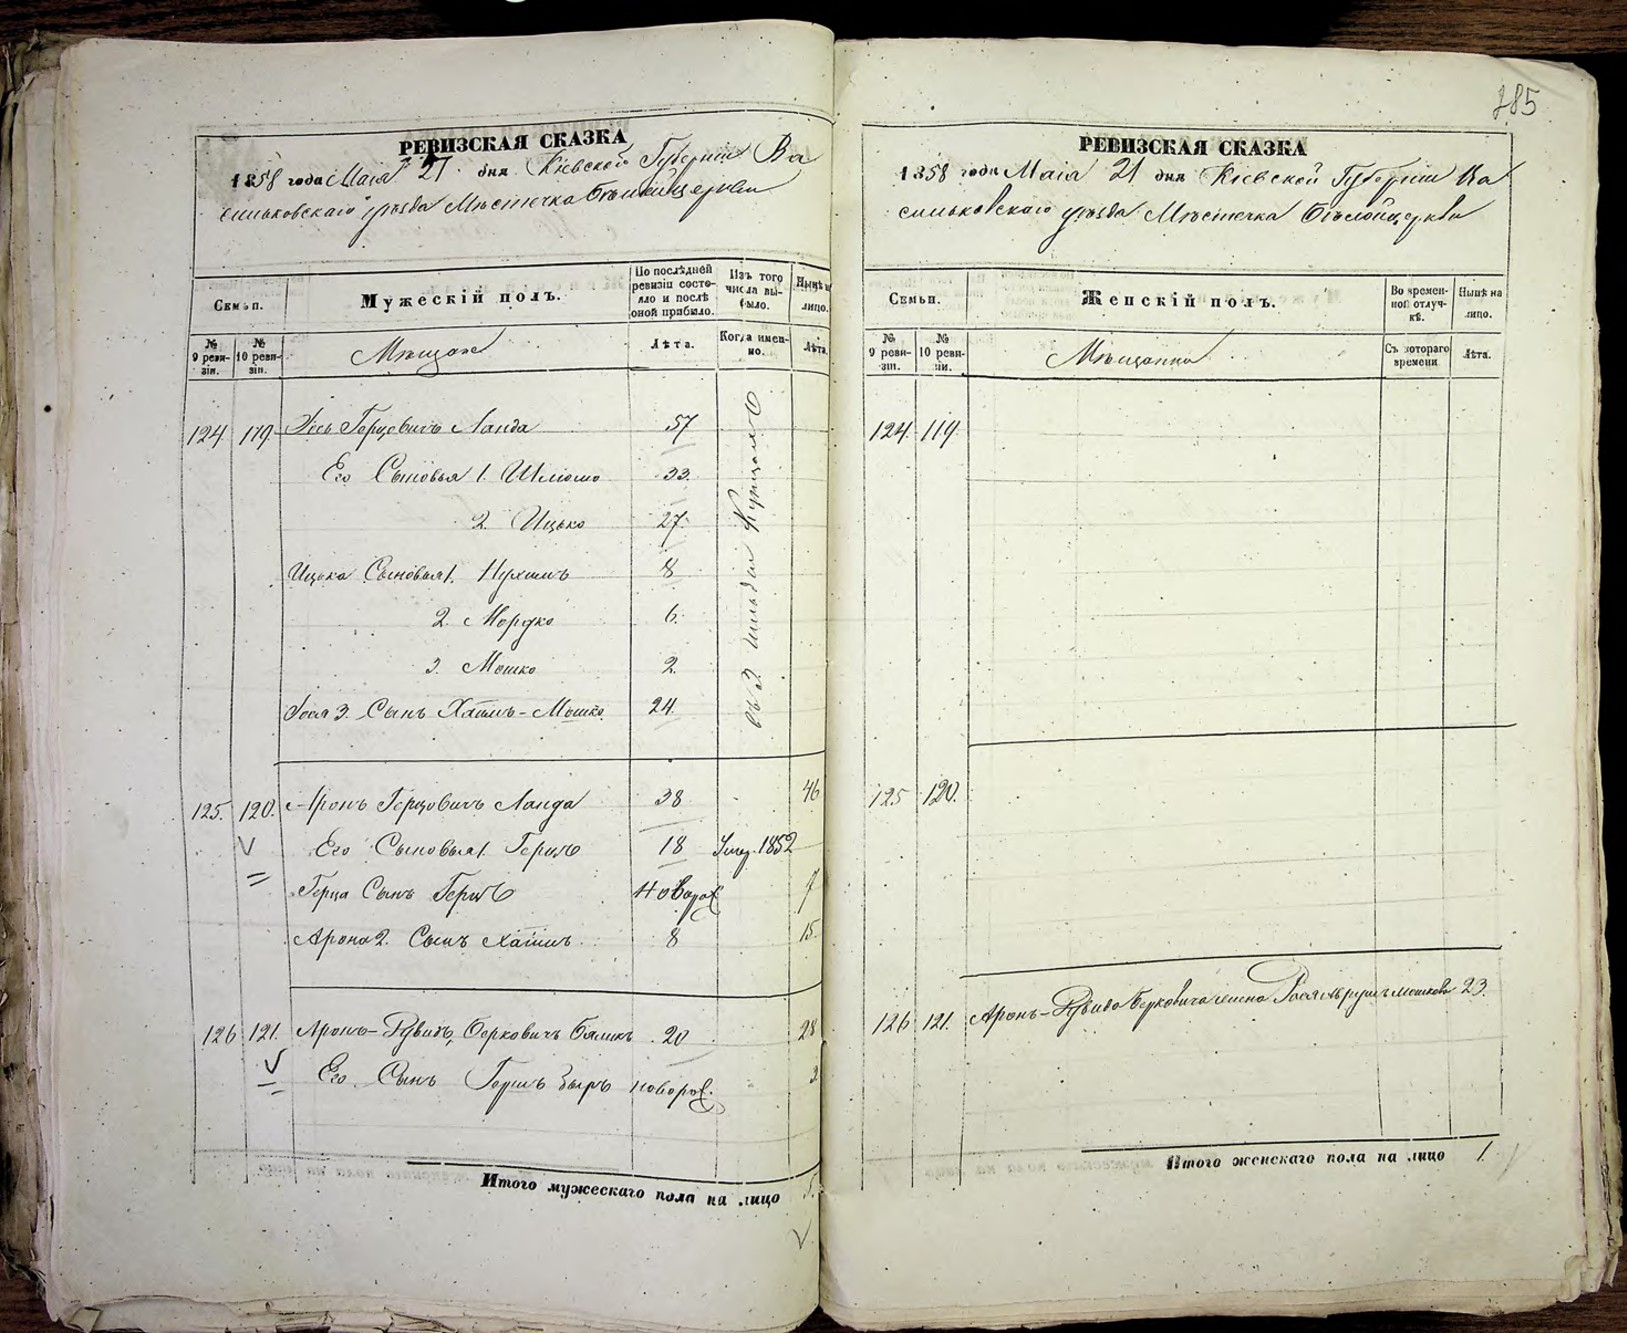 РЕВИЗСКАЯ СКАЗКА
1858 года Маія 21 дня Кіевской Губерніи Ва
сильковскаго уѣзда Мѣстечка Бѣлойцеркви
Семьи.
Мужескій полъ.
По послѣдней ревизіи состояло и послѣ оной прибыло.
Изъ того числа выбыло.
Нынѣ на лицо.
№ 9 ревизіи.
№ 10 ревизіи.
Мѣщане
Лѣта.
Когда именно.
Лѣта.
124 119 Герцовичъ Ланда 57
Его Сыновья 1. Шлiомо 33.
2. Ицько 27.
Ицька Сыновья 1. Нухимъ 8
2. Мордко 6.
3. Мошко 2.
3. Сынъ Хаимъ-Мошко 24.
въ 3 гильдіи Купцовъ
125. 120. Аронъ Герцовичъ Ланда 38 46
Его Сыновья 1. Герцъ 18 Умер. 1852
Герца Сынъ Гершъ новорож 7
Арона 2. Сынъ Хаимъ 8 15.
126 121. Аронъ-Рувинъ Берковичъ Бяликъ 20 28
Его Сынъ Гершъ Беръ новорож. 2
Итого мужескаго пола на лицо 5.
285
РЕВИЗСКАЯ СКАЗКА
1858 года Маія 21 дня Кіевской Губерніи Ва
сильковскаго уѣзда Мѣстечка Бѣлойцеркви
Семьи.
Женскій полъ.
Во временной отлучкѣ.
Нынѣ на лицо.
№ 9 ревизіи.
№ 10 ревизіи.
Мѣщанки
Съ котораго времени
Лѣта.
124. 119.
125 120.
126 121. Аронъ-Рувина Берковича жена Мошкова 23.
Итого женскаго пола на лицо 1.